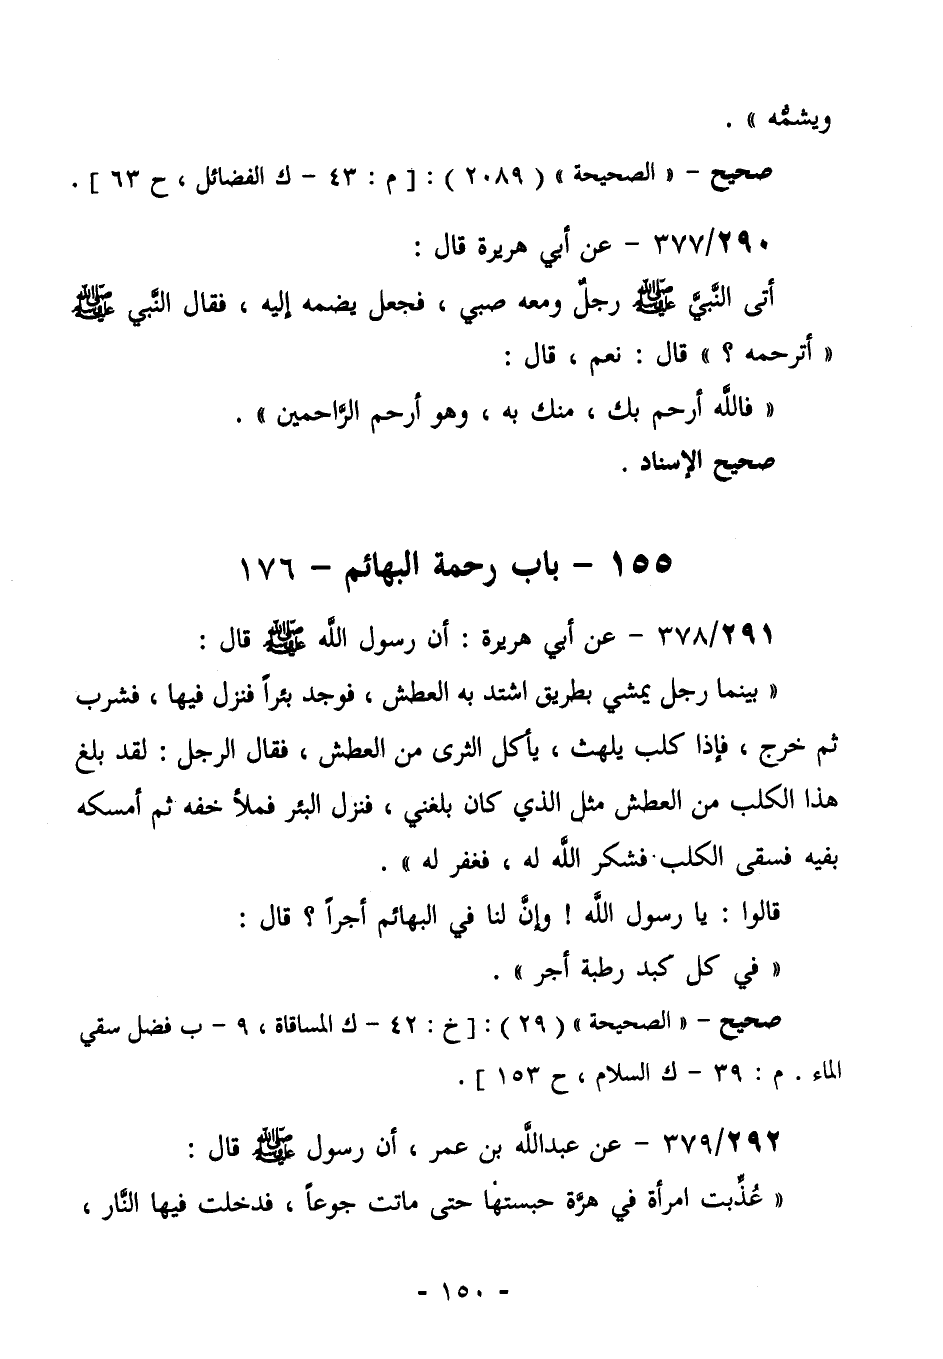 ويشمُّه » .
صحيح – « الصحيحة » ( ٢٠٨٩ ) : [ م : ٤٣ – ك الفضائل ، ح ٦٣ ] .
٣٧٧/٢٩٠ – عن أبي هريرة قال :
أتى النَّبيَّ ﷺ رجلٌ ومعه صبي ، فجعل يضمه إليه ، فقال النَّبي ﷺ
« أترحمه ؟ » قال : نعم ، قال :
« فاللَّه أرحم بك ، منك به ، وهو أرحم الرَّاحمين » .
صحيح الإسناد .
١٥٥ – باب رحمة البهائم – ١٧٦
٣٧٨/٢٩١ – عن أبي هريرة : أن رسول اللَّه ﷺ قال :
« بينما رجل يمشي بطريق اشتد به العطش ، فوجد بئراً فنزل فيها ، فشرب
ثم خرج ، فإذا كلب يلهث ، يأكل الثرى من العطش ، فقال الرجل : لقد بلغ
هذا الكلب من العطش مثل الذي كان بلغني ، فنزل البئر فملأ خفه ثم أمسكه
بفيه فسقى الكلب فشكر اللَّه له ، فغفر له » .
قالوا : يا رسول اللَّه ! وإنَّ لنا في البهائم أجراً ؟ قال :
« في كل كبد رطبة أجر » .
صحيح – « الصحيحة » ( ٢٩ ) : [ خ : ٤٢ – ك المساقاة ، ٩ – ب فضل سقي
الماء . م : ٣٩ – ك السلام ، ح ١٥٣ ] .
٣٧٩/٢٩٢ – عن عبداللَّه بن عمر ، أن رسول ﷺ قال :
« عُذِّبت امرأة في هرَّة حبستها حتى ماتت جوعاً ، فدخلت فيها النَّار ،
- ١٥٠ -